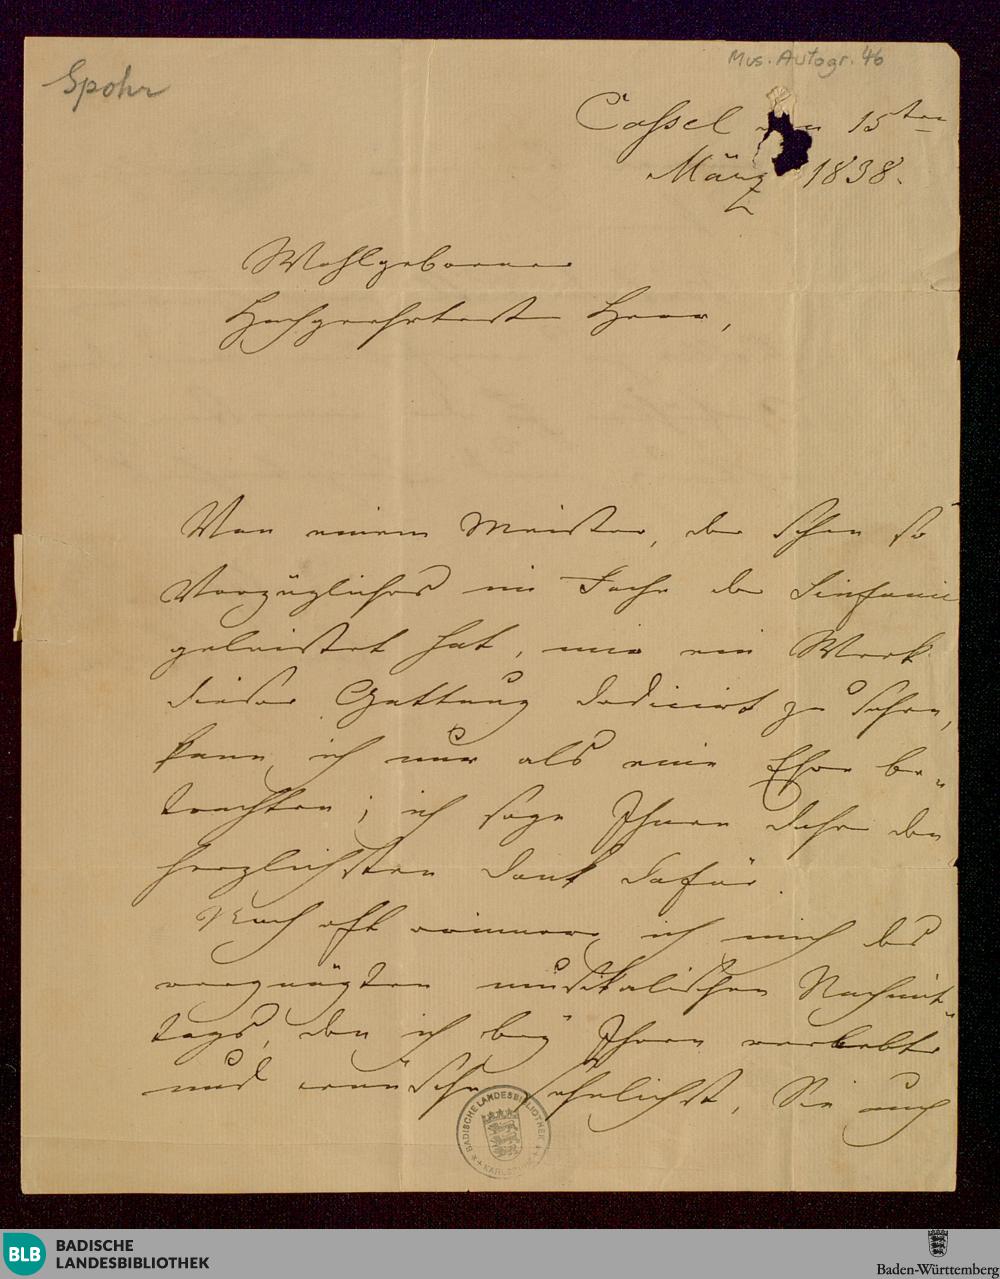 Spohr
Mus. Autogr. 46
Cassel den 15ten
März 1838.
Wohlgeborner
Hochgeehrtester Herr,
Von einem Meister, der schon so
Vorzügliches im Fache der Sinfonie
geleistet hat, mir ein Werk
dieser Gattung dedicirt zu sehen,
kann ich nur als eine Ehre be-
trachten; ich sage Ihnen daher den
herzlichsten Dank dafür.
Noch oft erinnere ich mich des
vergnügten musikalischen Nachmit-
tags, den ich bey Ihnen verlebte
und wünsche sehnlichst, Sie auch
BADISCHE LANDESBIBLIOTHEK
KARLSRUHE
BLB
BADISCHE
LANDESBIBLIOTHEK
Baden-Württemberg